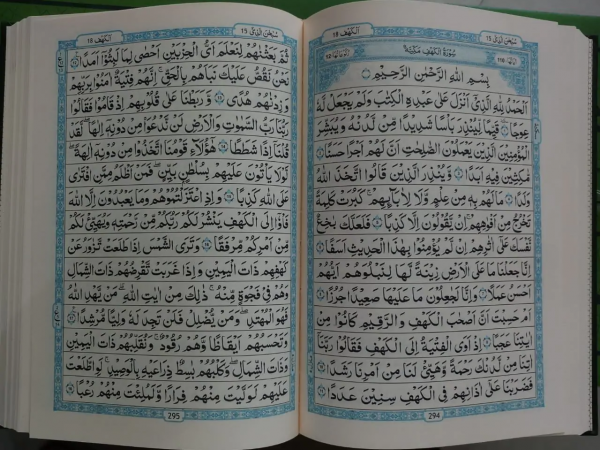 سبحن الذی 15
الکهف 18
سُوْرَةُ الْكَهْفِ مَكِّيَّةٌ
بِسْمِ اللّٰهِ الرَّحْمٰنِ الرَّحِيْمِ
اَلْحَمْدُ لِلّٰهِ الَّذِيْٓ اَنْزَلَ عَلٰى عَبْدِهِ الْكِتٰبَ وَلَمْ يَجْعَلْ لَّهٗ
عِوَجًا قَيِّمًا لِّيُنْذِرَ بَاْسًا شَدِيْدًا مِّنْ لَّدُنْهُ وَيُبَشِّرَ
الْمُؤْمِنِيْنَ الَّذِيْنَ يَعْمَلُوْنَ الصّٰلِحٰتِ اَنَّ لَهُمْ اَجْرًا حَسَنًا
مَّاكِثِيْنَ فِيْهِ اَبَدًا وَّيُنْذِرَ الَّذِيْنَ قَالُوا اتَّخَذَ اللّٰهُ
وَلَدًا مَا لَهُمْ بِهٖ مِنْ عِلْمٍ وَّلَا لِاٰبَآئِهِمْ كَبُرَتْ كَلِمَةً
تَخْرُجُ مِنْ اَفْوَاهِهِمْ اِنْ يَّقُوْلُوْنَ اِلَّا كَذِبًا فَلَعَلَّكَ بَاخِعٌ
نَّفْسَكَ عَلٰٓى اٰثَارِهِمْ اِنْ لَّمْ يُؤْمِنُوْا بِهٰذَا الْحَدِيْثِ اَسَفًا
اِنَّا جَعَلْنَا مَا عَلَى الْاَرْضِ زِيْنَةً لَّهَا لِنَبْلُوَهُمْ اَيُّهُمْ
اَحْسَنُ عَمَلًا وَاِنَّا لَجٰعِلُوْنَ مَا عَلَيْهَا صَعِيْدًا جُرُزًا
اَمْ حَسِبْتَ اَنَّ اَصْحٰبَ الْكَهْفِ وَالرَّقِيْمِ كَانُوْا مِنْ
اٰيٰتِنَا عَجَبًا اِذْ اَوَى الْفِتْيَةُ اِلَى الْكَهْفِ فَقَالُوْا رَبَّنَآ
اٰتِنَا مِنْ لَّدُنْكَ رَحْمَةً وَّهَيِّئْ لَنَا مِنْ اَمْرِنَا رَشَدًا
فَضَرَبْنَا عَلٰٓى اٰذَانِهِمْ فِي الْكَهْفِ سِنِيْنَ عَدَدًا
294
سبحن الذی 15
الکهف 18
ثُمَّ بَعَثْنٰهُمْ لِنَعْلَمَ اَيُّ الْحِزْبَيْنِ اَحْصٰى لِمَا لَبِثُوْٓا اَمَدًا
نَحْنُ نَقُصُّ عَلَيْكَ نَبَاَهُمْ بِالْحَقِّ اِنَّهُمْ فِتْيَةٌ اٰمَنُوْا بِرَبِّهِمْ
وَزِدْنٰهُمْ هُدًى وَّرَبَطْنَا عَلٰى قُلُوْبِهِمْ اِذْ قَامُوْا فَقَالُوْا
رَبُّنَا رَبُّ السَّمٰوٰتِ وَالْاَرْضِ لَنْ نَّدْعُوَا مِنْ دُوْنِهٖٓ اِلٰهًا لَّقَدْ
قُلْنَآ اِذًا شَطَطًا هٰٓؤُلَآءِ قَوْمُنَا اتَّخَذُوْا مِنْ دُوْنِهٖٓ اٰلِهَةً
لَوْلَا يَاْتُوْنَ عَلَيْهِمْ بِسُلْطٰنٍ بَيِّنٍ فَمَنْ اَظْلَمُ مِمَّنِ افْتَرٰى
عَلَى اللّٰهِ كَذِبًا وَاِذِ اعْتَزَلْتُمُوْهُمْ وَمَا يَعْبُدُوْنَ اِلَّا اللّٰهَ
فَاْوٗٓا اِلَى الْكَهْفِ يَنْشُرْ لَكُمْ رَبُّكُمْ مِّنْ رَّحْمَتِهٖ وَيُهَيِّئْ لَكُمْ
مِّنْ اَمْرِكُمْ مِّرْفَقًا وَتَرَى الشَّمْسَ اِذَا طَلَعَتْ تَّزٰوَرُ عَنْ
كَهْفِهِمْ ذَاتَ الْيَمِيْنِ وَاِذَا غَرَبَتْ تَّقْرِضُهُمْ ذَاتَ الشِّمَالِ
وَهُمْ فِيْ فَجْوَةٍ مِّنْهُ ذٰلِكَ مِنْ اٰيٰتِ اللّٰهِ مَنْ يَّهْدِ اللّٰهُ
فَهُوَ الْمُهْتَدِ وَمَنْ يُّضْلِلْ فَلَنْ تَجِدَ لَهٗ وَلِيًّا مُّرْشِدًا
وَتَحْسَبُهُمْ اَيْقَاظًا وَّهُمْ رُقُوْدٌ وَّنُقَلِّبُهُمْ ذَاتَ الْيَمِيْنِ
وَذَاتَ الشِّمَالِ وَكَلْبُهُمْ بَاسِطٌ ذِرَاعَيْهِ بِالْوَصِيْدِ لَوِ اطَّلَعْتَ
عَلَيْهِمْ لَوَلَّيْتَ مِنْهُمْ فِرَارًا وَّلَمُلِئْتَ مِنْهُمْ رُعْبًا
295